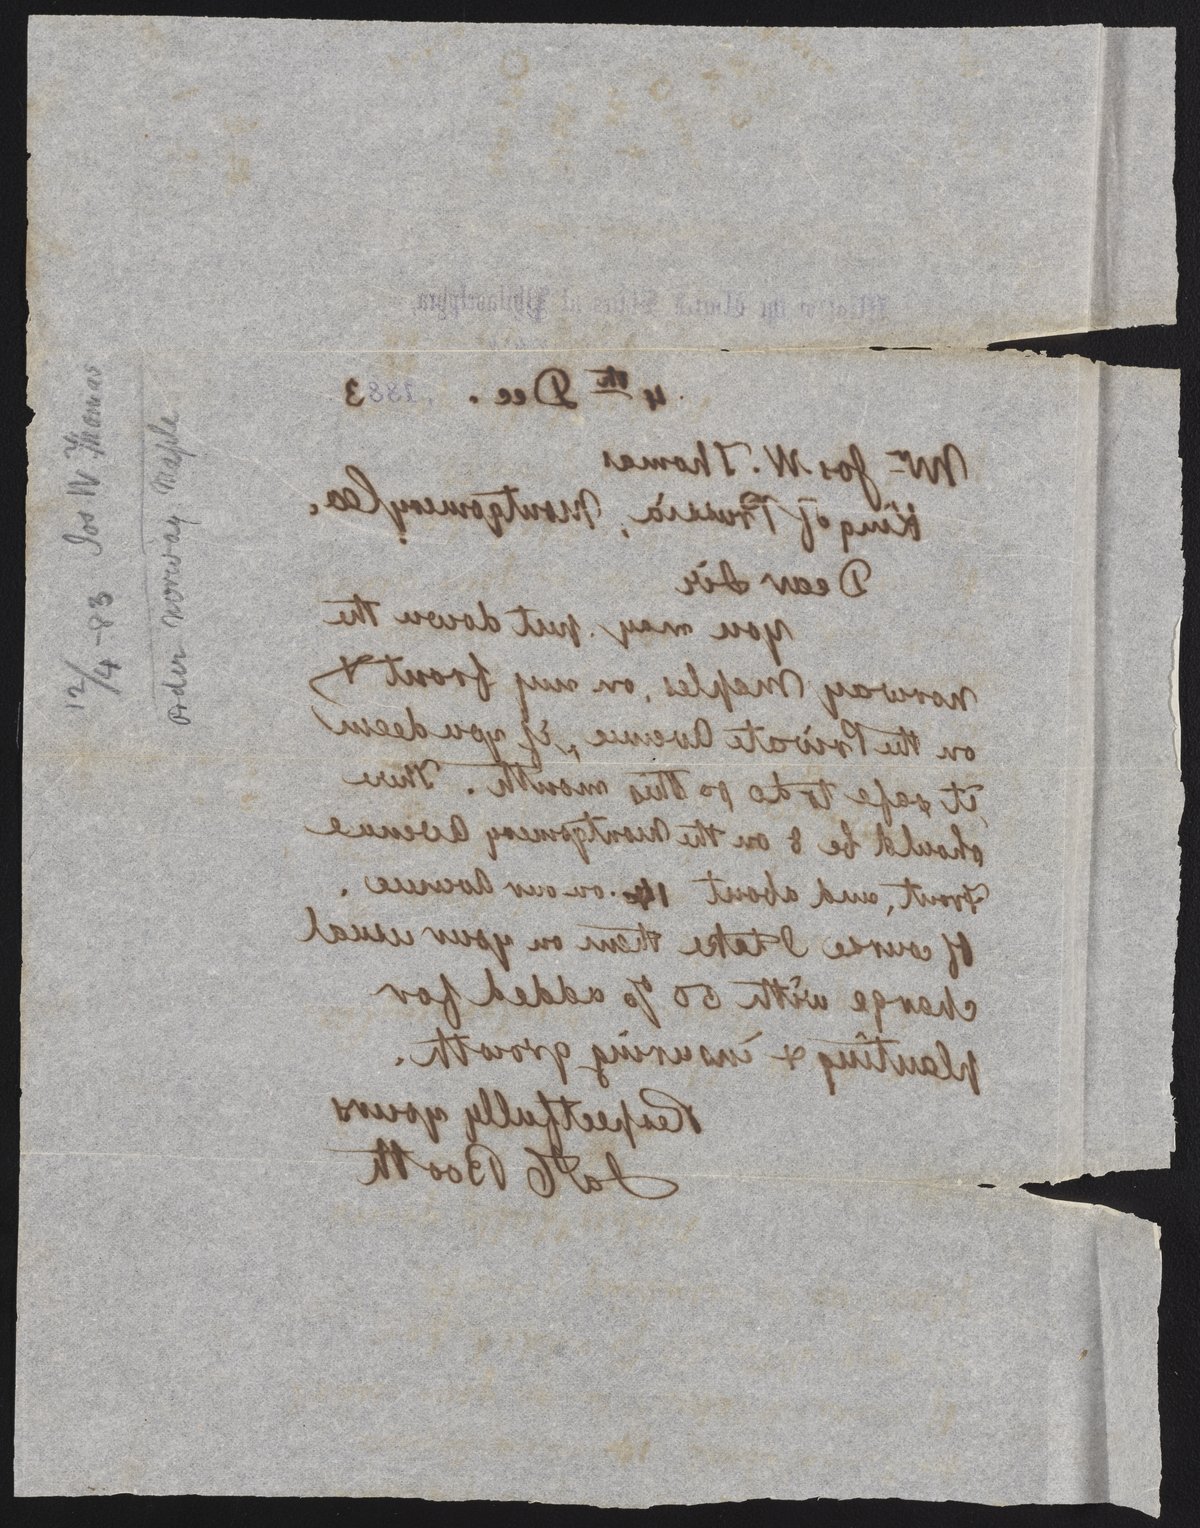 12/4-83 Jos W Thomas
Order Norway Maple
Mint of the United States at Philadelphia,
4th Dec. , 1883
Mr Jos W. Thomas
King of Prussia, Montgomery Co.
Dear Sir
You may put down the
Norway Maples, on my front &
on the Private Avenue, if you deem
it safe to do so this month. There
should be 8 on the Montgomery Avenue
front, and about 14 on our Avenue.
Of course I take them on your usual
charge with 50 % added for
planting & insuring growth.
Respectfully yours
Jas C Booth